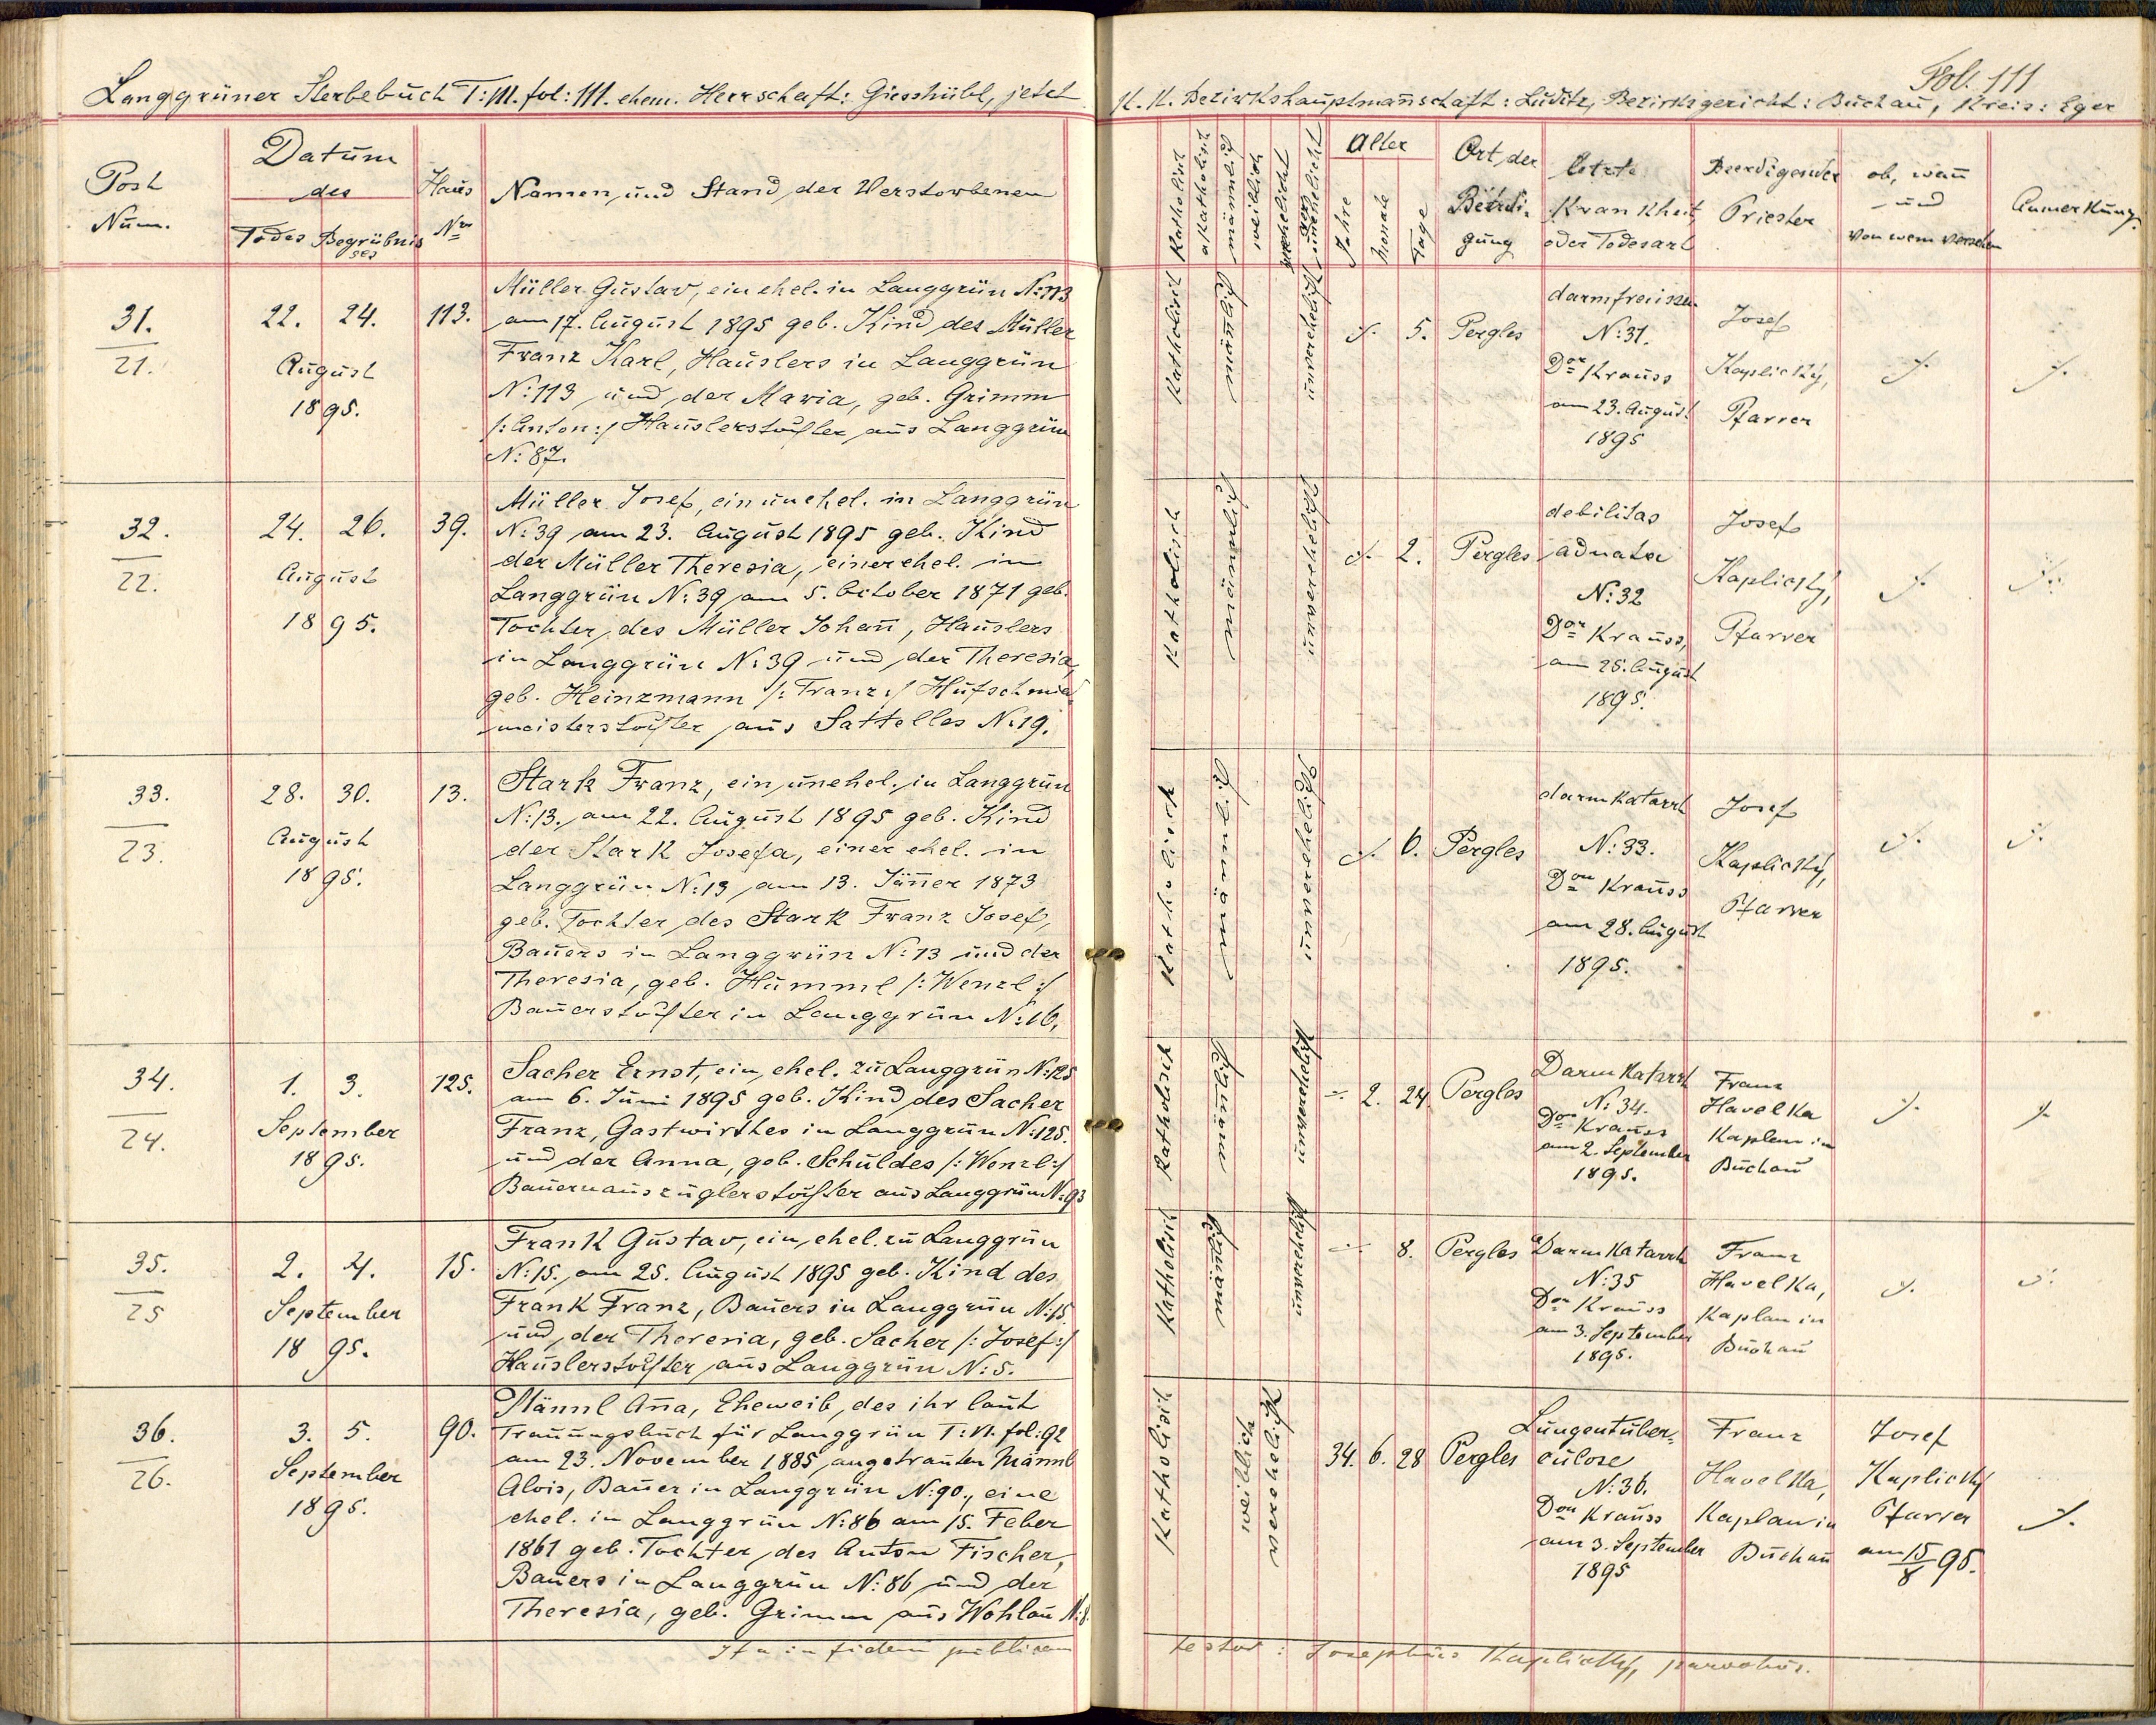 Langgrüner Sterbebuch T: III. fol: 111. ehem. Herrschaft: Giesshübl, jetzt
Post
Num.
Datum
des
Todes Begräbnis
ses
Haus
Nro
Namen und Stand der Verstorbenen
31.
21.
22. 24.
August
1895.
113.
Müller Gustav, ein ehel. in Langgrün N: 113
am 17. August 1895 geb. Kind des Müller
Franz Karl, Häuslers in Langgrün
N: 113 und der Maria, geb. Grimm
/: Anton :/ Häuslerstochter aus Langgrün
N: 87.
32.
22.
24. 26.
August
1895.
39.
Müller Josef, ein unehel. in Langgrün
N: 39 am 23. August 1895 geb. Kind
der Müller Theresia, einer ehel. in
Langgrün N: 39 am 5. October 1871 geb.
Tochter des Müller Johañ, Häuslers
in Langgrün N: 39 und der Theresia,
geb. Heinzmann /: Franz :/ Hufschmied
meisterstochter aus Sattelles N: 19.
33.
23.
28. 30.
August
1895.
13.
Stark Franz, ein unehel. in Langgrün
N: 13. am 22. August 1895 geb. Kind
der Stark Josefa, einer ehel. in
Langgrün N: 13 am 13. Jäñer 1873
geb. Tochter des Stark Franz Josef,
Bauers in Langgrün N: 13 und der
Theresia, geb. Hümml /: Wenzl :/
Bauerstochter in Langgrün N: 16.
34.
24.
1. 3.
September
1895.
125.
Sacher Ernst, ein ehel. zu Langgrün N: 125
am 6. Juni 1895 geb. Kind des Sacher
Franz, Gastwirthes in Langgrün N: 125.
und der Anna, geb. Schuldes /: Wenzl :/
Bauernauszüglerstochter aus Langgrün N: 93
35.
25
2. 4.
September
1895.
15.
Frank Gustav, ein ehel. zu Langgrün
N: 15. am 25. August 1895 geb. Kind des
Frank Franz, Bauers in Langgrün N: 15.
und der Theresia, geb. Sacher /: Josef :/
Häuslerstochter aus Langgrün N: 5.
36.
26.
3. 5.
September
1895.
90.
Männl Aña, Eheweib, des ihr laut
Trauungsbuch für Langgrün T: VI. fol: 92
am 23. November 1885 angetrauten Männl
Alois, Bauer in Langgrün N: 90., eine
ehel. in Langgrün N: 86 am 15. Feber
1861 geb. Tochter des Anton Fischer,
Bauers in Langgrün N: 86 und der
Theresia, geb. Grimm aus Wohlau N: 8.
Ita in fidem publicam
Fol. 111
K. K. Bezirkshauptmañschaft: Luditz, Bezirksgericht: Buchau, Kreis: Eger
Katholisch
akatholisch
männlich
weiblich
verehelicht
unverehelicht
Alter
Jahre
Monate
Tage
Ort der
Beerdi-
gung
letzte
Krankheit
oder Todesart
Beerdigender
Priester
ob, wañ
und
von wem versehen
Anmerkung.
Katholisch
männlich
unverehelicht
./. 5.
Pergles
darmfraisen
N: 31.
Dor Krauss
am 23. August
1895
Josef
Kaplicky,
Pfarrer
./.
./.
Katholisch
männlich
unverehelicht
./. 2.
Pergles
debilitas
adnata
N: 32
Dor Krauss,
am 25. August
1895.
Josef
Kaplicky,
Pfarrer
./.
./.
Katholisch
männlich
unverehelicht
./. 6.
Pergles
darmkatarrh
N: 33.
Dor Krauss
am 28. August
1895.
Josef
Kaplicky,
Pfarrer
./.
./.
Katholisch
männlich
unverehelicht
÷ 2. 24
Pergles
Darmkatarrh
N: 34.
Dor Krauss
am 2. September
1895.
Franz
Havelka
Kaplan in
Buchau
./.
./.
Katholisch
männlich
unverehelicht
÷ 8.
Pergles
Darmkatarrh
N: 35
Dor Krauss
am 3. September
1895.
Franz
Havelka,
Kaplan in
Buchau
./.
./.
Katholisch
weiblich
verehelicht
34. 6. 28
Pergles
Lungentuber-
culose
N: 36.
Dor Krauss
am 3. September
1895
Franz
Havelka,
Kaplan in
Buchau
Josef
Kaplicky
Pfarrer
am 15/8 95.
./.
testor: Josephus Kaplicky, parochus.